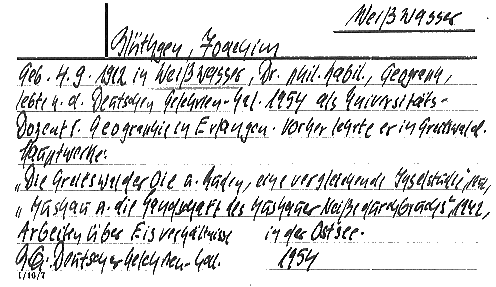 Weißwasser
Blüthgen, Joachim
Geb. 4.9.1912 in Weißwasser, Dr. phil. habil., Geograph,
lebt n. d. Deutschen Gelehrten-Kal. 1954 als Universitäts-
Dozent f. Geographie in Erlangen. Vorher lehrte er in Greifswald.
Hauptwerke:
„Die Greifswalder Oie u. Ruden, eine vergleichende Inselstudie"
„Muskau u. die Landschaft des Muskauer Neißedurchbruchs" 1942,
Arbeiten über Eisverhältnisse in der Ostsee.
Deutscher Gelehrten-Kal. 1954